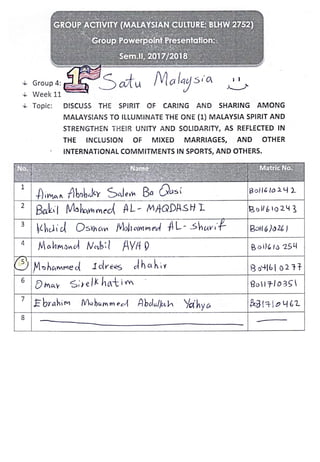 GROUP ACTIVITY (MALAYSIAN CULTURE: BLHW 2752)
Group Powerpoint Presentation:
Sem.II, 2017/2018
Group 4: 1 Satu Malaysia
Week 11
Topic: DISCUSS THE SPIRIT OF CARING AND SHARING AMONG
MALAYSIANS TO ILLUMINATE THE ONE (1) MALAYSIA SPIRIT AND
STRENGTHEN THEIR UNITY AND SOLIDARITY, AS REFLECTED IN
THE INCLUSION OF MIXED MARRIAGES, AND OTHER
INTERNATIONAL COMMITMENTS IN SPORTS, AND OTHERS.
No. Name Matric No.
1 Aiman Ababakr Salem Ba Qasi B011610242
2 Bakil Mohammed AL-MAQDASHI B011610243
3 Khalid Osman Mohammed AL-sharif B011610261
4 Mahmoud Nabil AYAD B011610254
5 Mohammed Idrees dhahir B041610277
6 Omar Sirelkhatim B011710351
7 Ebrahim Mohammed Abdullah Yahya B031710462
8